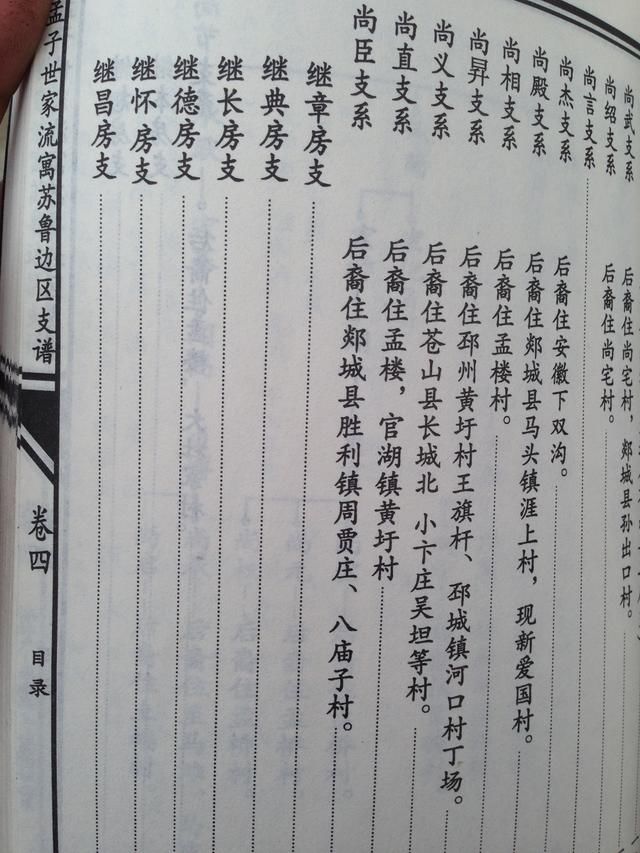 尚武支系 后裔住尚宅村，郯城县孙出口村。
尚绍支系 后裔住尚宅村。
尚言支系
尚杰支系 后裔住安徽下双沟。
尚殿支系 后裔住郯城县马头镇涯上村，现新爱国村。
尚相支系 后裔住孟楼村。
尚昇支系 后裔住邳州黄圩村王旗杆、邳城镇河口村丁场。
尚义支系 后裔住苍山县长城北 小卞庄吴坦等村。
尚直支系 后裔住孟楼，官湖镇黄圩村
尚臣支系 后裔住郯城县胜利镇周贾庄、八庙子村。
继章房支
继典房支
继长房支
继德房支
继怀房支
继昌房支
孟子世家流寓苏鲁边区支谱
卷四
目录